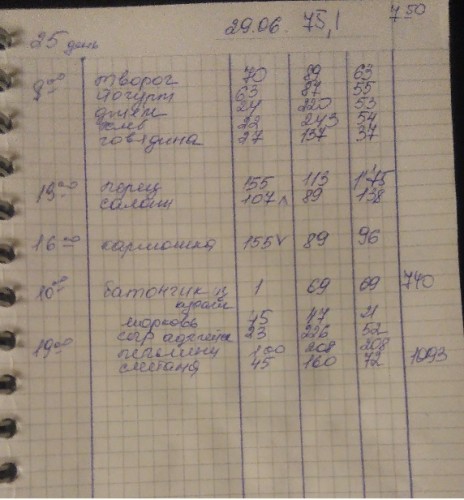 29.06. 75,1 7 50
25 день
9 00 творог 70 89 63
йогурт 63 87 55
джем 24 220 53
хлеб 22 243 54
говядина 27 137 37
13 00 перец 155 113 175
салат 107 89
16 00 картошка 155 89 96
батончик 1 69 69 740
морковь 45 47 21
сыр адыгейск 23 226 52
19 00 пельмени 100 208 208
сметана 45 160 72 1093